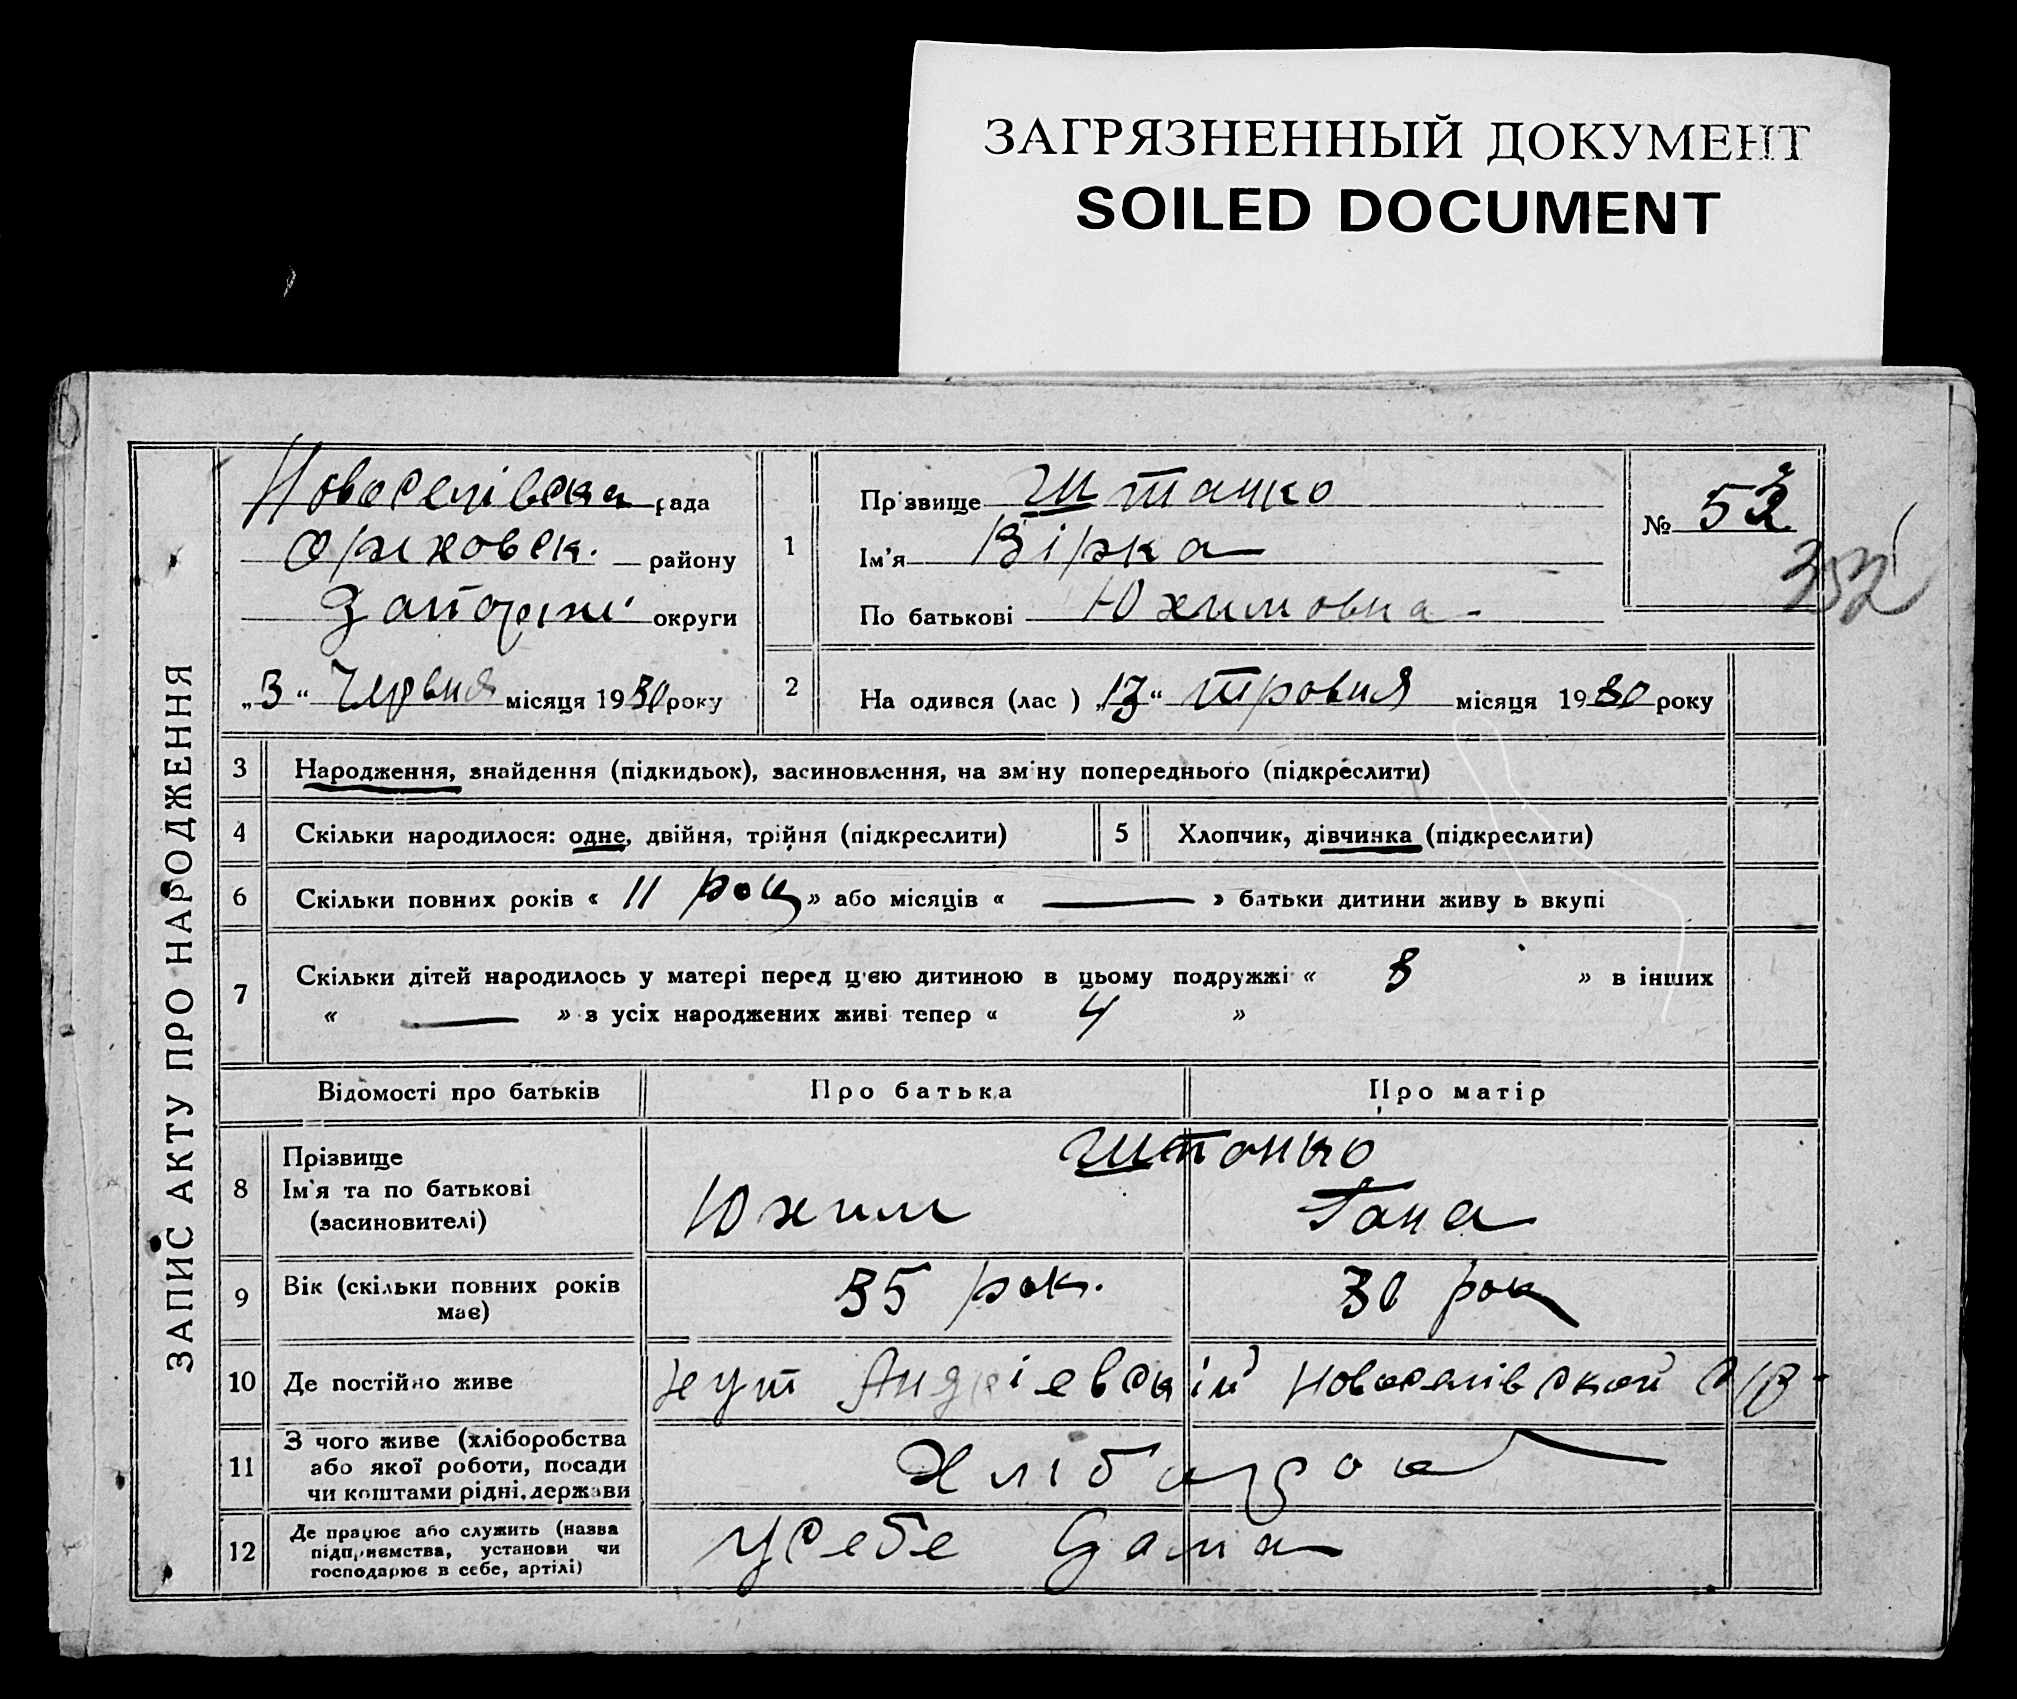 ЗАГРЯЗНЕННЫЙ ДОКУМЕНТ
SOILED DOCUMENT
ЗАПИС АКТУ ПРО НАРОДЖЕННЯ
Новоселівска рада
Оріховск. району
Запоріж округи
„3“ Червня місяця 1930 року
1
Прізвище Штанко
Ім'я Вірка
По батькові Юхимовна
№ 52
352
2 На одився (лас ) „13“ Тровня місяця 1930 року
3 Народження, знайдення (підкидьок), засиновлення, на зміну попереднього (підкреслити)
4 Скільки народилося: одне, двійня, трійня (підкреслити) 5 Хлопчик, дівчинка (підкреслити)
6 Скільки повних років « 11 роц » або місяців « — » батьки дитини живу ь вкупі
7 Скільки дітей народилось у матері перед цією дитиною в цьому подружжі « 8 » в інших
« — » з усіх народжених живі тепер « 4 »
Відомості про батьків Про батька Про матір
8 Прізвище Штонко
Ім'я та по батькові Юхим Гана
(засиновителі)
9 Вік (скільки повних років має) 35 рок. 30 рок
10 Де постійно живе хут Андріевскій Новоселівской С/В
11 З чого живе (хліборобства
або якої роботи, посади
чи коштами рідні, держави Хлібороб
12 Де працює або служить (назва
підприємства, установи чи
господарює в себе, артілі) у себе Дома